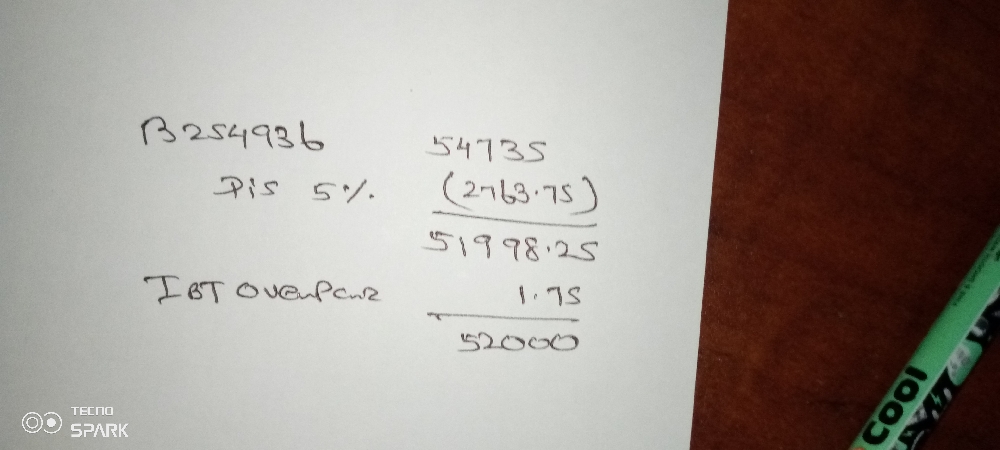 B254936 54735
Dis 5% (2763.75)
51998.25
IBT Overpaid 1.75
52000
COOL
TECNO
SPARK